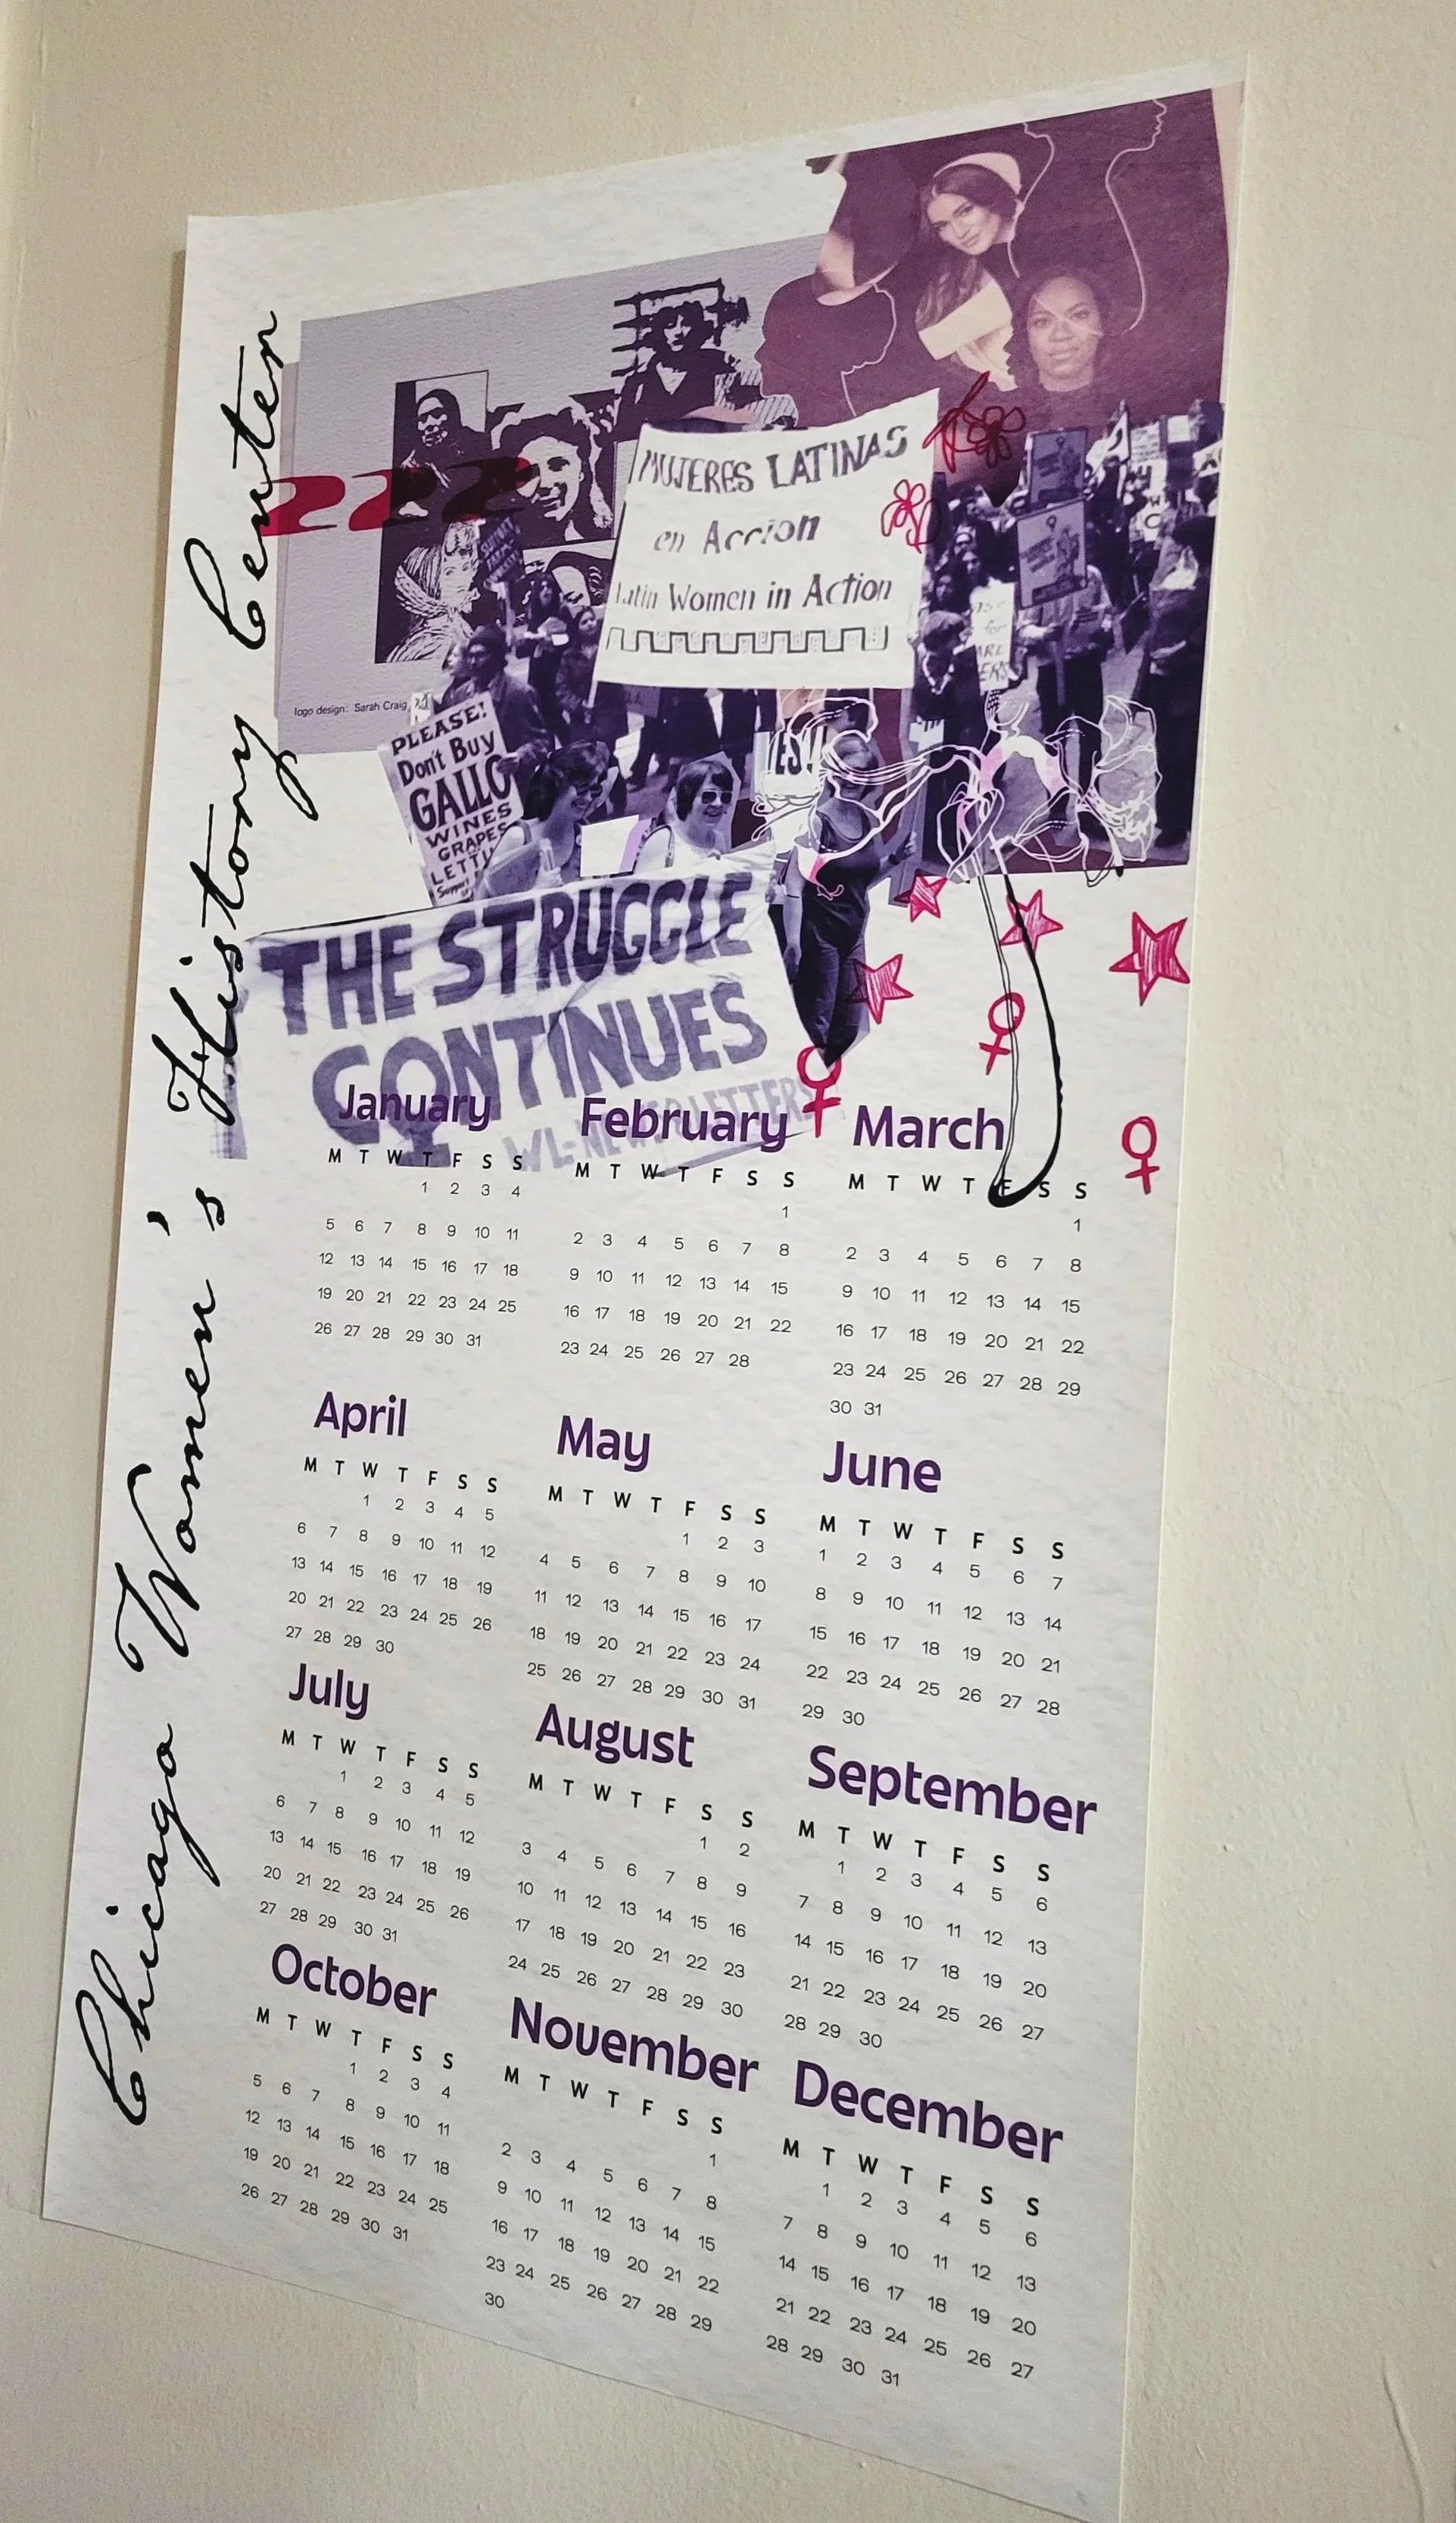 Chicago Women's History Center
222
MUJERES LATINAS
en Accion
Latin Women in Action
logo design: Sarah Craig
PLEASE!
Don't Buy
GALLO
WINES
GRAPES
YES!!
THE STRUGGLE
CONTINUES
January
M T W T F S S
1 2 3 4
5 6 7 8 9 10 11
12 13 14 15 16 17 18
19 20 21 22 23 24 25
26 27 28 29 30 31
February
M T W T F S S
1
2 3 4 5 6 7 8
9 10 11 12 13 14 15
16 17 18 19 20 21 22
23 24 25 26 27 28
March
M T W T F S S
1
2 3 4 5 6 7 8
9 10 11 12 13 14 15
16 17 18 19 20 21 22
23 24 25 26 27 28 29
30 31
April
M T W T F S S
1 2 3 4 5
6 7 8 9 10 11 12
13 14 15 16 17 18 19
20 21 22 23 24 25 26
27 28 29 30
May
M T W T F S S
1 2 3
4 5 6 7 8 9 10
11 12 13 14 15 16 17
18 19 20 21 22 23 24
25 26 27 28 29 30 31
June
M T W T F S S
1 2 3 4 5 6 7
8 9 10 11 12 13 14
15 16 17 18 19 20 21
22 23 24 25 26 27 28
29 30
July
M T W T F S S
1 2 3 4 5
6 7 8 9 10 11 12
13 14 15 16 17 18 19
20 21 22 23 24 25 26
27 28 29 30 31
August
M T W T F S S
1 2
3 4 5 6 7 8 9
10 11 12 13 14 15 16
17 18 19 20 21 22 23
24 25 26 27 28 29 30
September
M T W T F S S
1 2 3 4 5 6
7 8 9 10 11 12 13
14 15 16 17 18 19 20
21 22 23 24 25 26 27
28 29 30
October
M T W T F S S
1 2 3 4
5 6 7 8 9 10 11
12 13 14 15 16 17 18
19 20 21 22 23 24 25
26 27 28 29 30 31
November
M T W T F S S
1
2 3 4 5 6 7 8
9 10 11 12 13 14 15
16 17 18 19 20 21 22
23 24 25 26 27 28 29
30
December
M T W T F S S
1 2 3 4 5 6
7 8 9 10 11 12 13
14 15 16 17 18 19 20
21 22 23 24 25 26 27
28 29 30 31